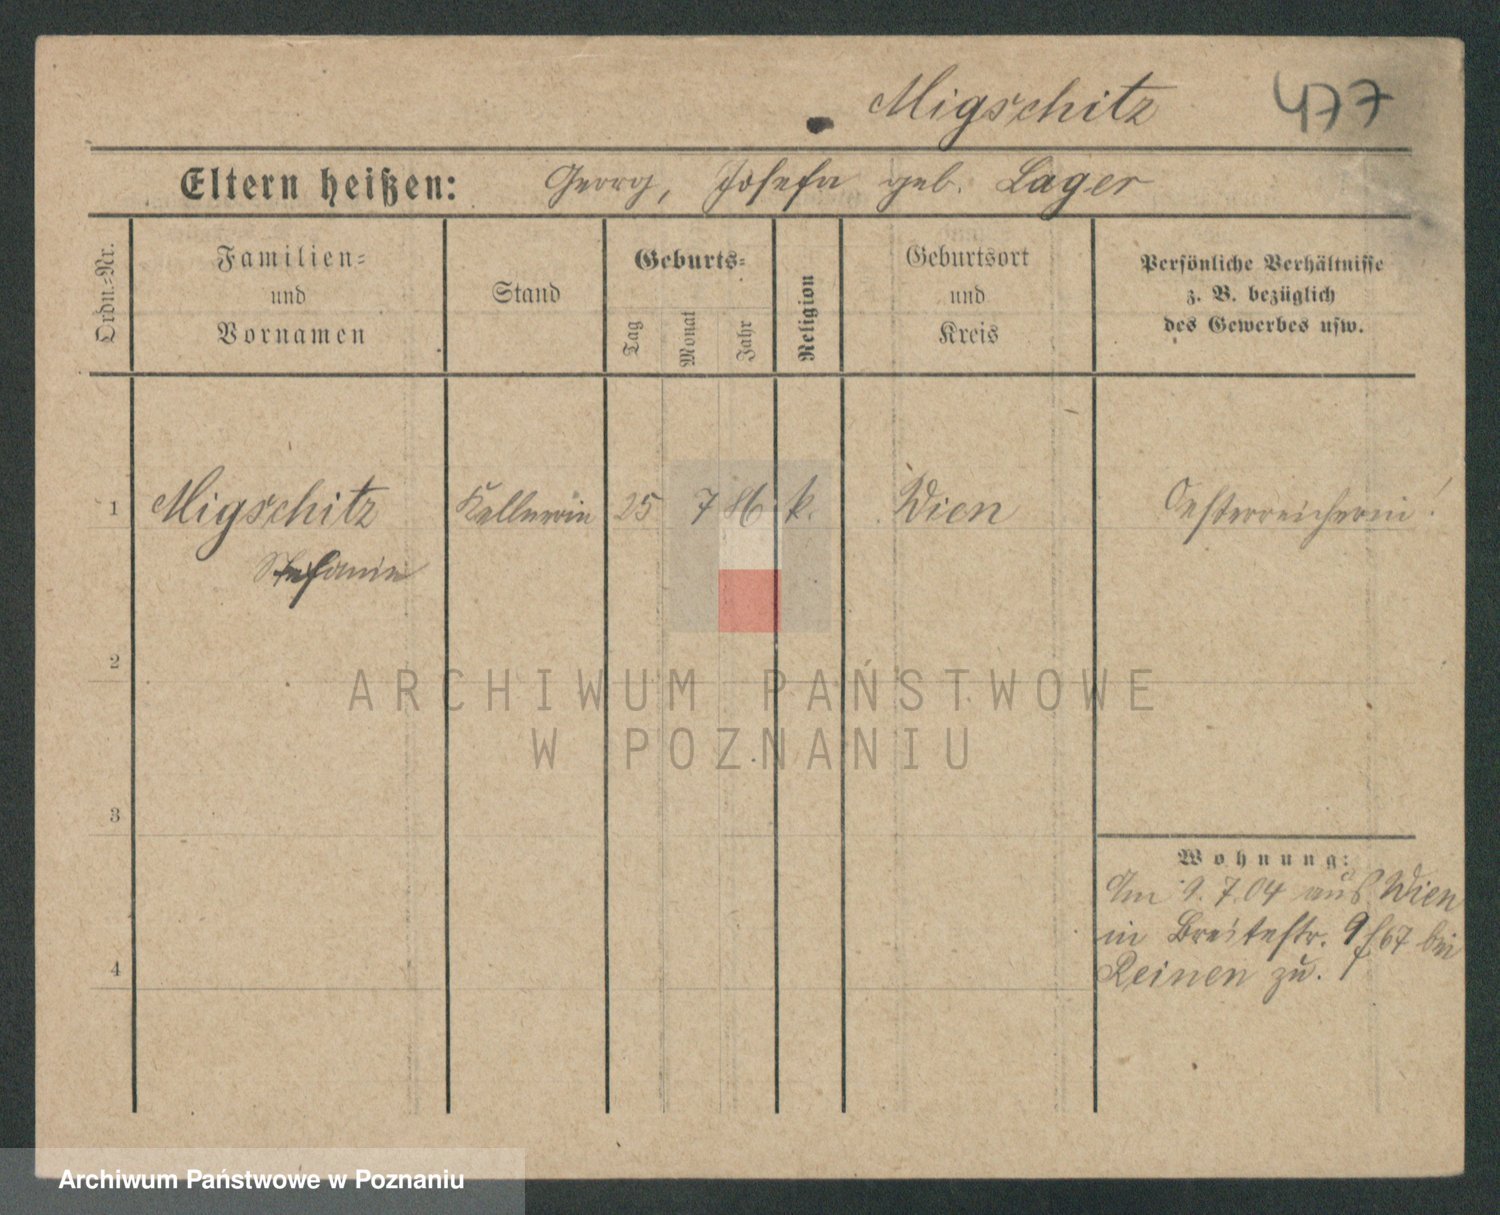 Migschitz 477
Eltern heißen: Georg, Josefa geb. Lager
Ordn.-Nr.
Familien=
und
Vornamen
Stand
Geburts=
Tag
Monat
Jahr
Religion
Geburtsort
und
Kreis
Persönliche Verhältnisse
z. B. bezüglich
des Gewerbes usw.
1 Migschitz Kellnerin 25 7 86 k. Wien Oesterreicherin!
Stefanie
2
ARCHIWUM PAŃSTWOWE
W POZNANIU
3
Wohnung:
Am 9.7.04 aus Wien
in Breitestr. 9 67 bei
4
Reinen zu.
Archiwum Państwowe w Poznaniu